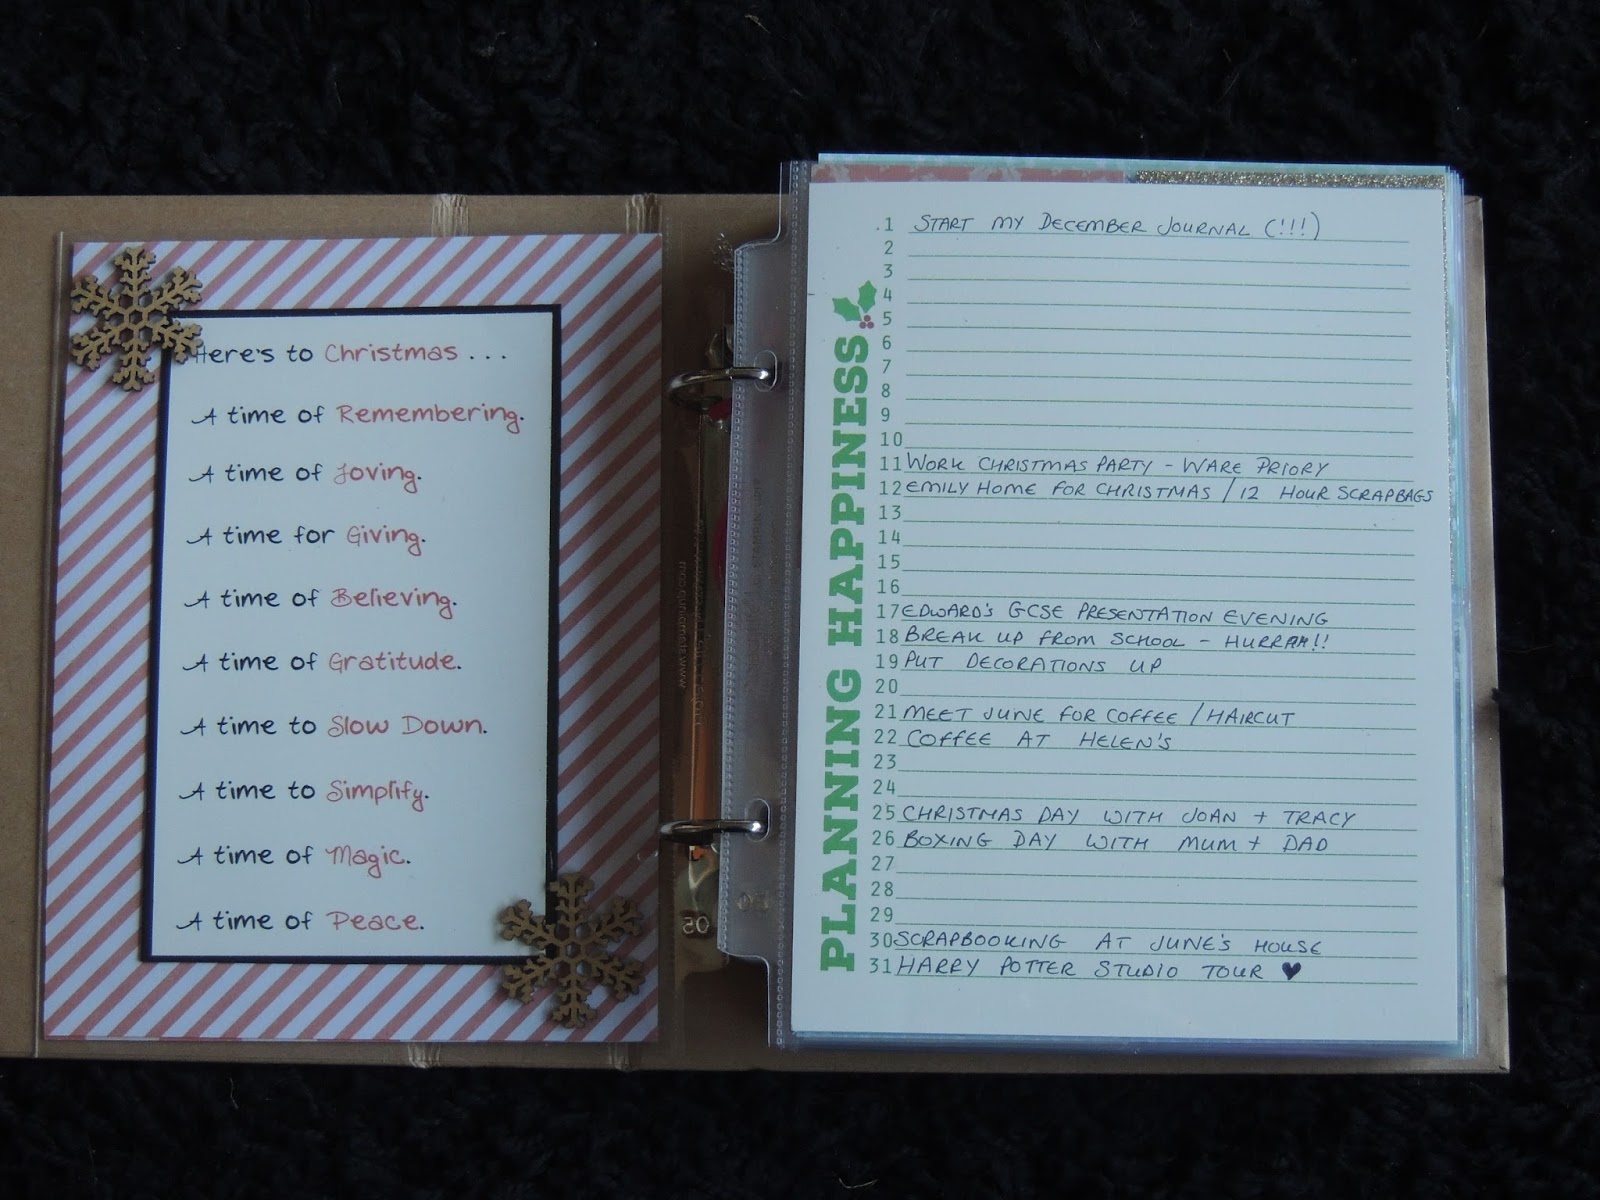 Here's to Christmas . . .
A time of Remembering.
A time of Loving.
A time for Giving.
A time of Believing.
A time of Gratitude.
A time to Slow Down.
A time to Simplify.
A time of Magic.
A time of Peace.
PLANNING HAPPINESS
1 START MY DECEMBER JOURNAL (!!!)
2
3
4
5
6
7
8
9
10
11 WORK CHRISTMAS PARTY - WARE PRIORY
12 EMILY HOME FOR CHRISTMAS / 12 HOUR SCRAPBAGS
13
14
15
16
17 EDWARD'S GCSE PRESENTATION EVENING
18 BREAK UP FROM SCHOOL - HURRAH!!
19 PUT DECORATIONS UP
20
21 MEET JUNE FOR COFFEE / HAIRCUT
22 COFFEE AT HELEN'S
23
24
25 CHRISTMAS DAY WITH JOAN + TRACY
26 BOXING DAY WITH MUM + DAD
27
28
29
30 SCRAPBOOKING AT JUNE'S HOUSE
31 HARRY POTTER STUDIO TOUR ♥